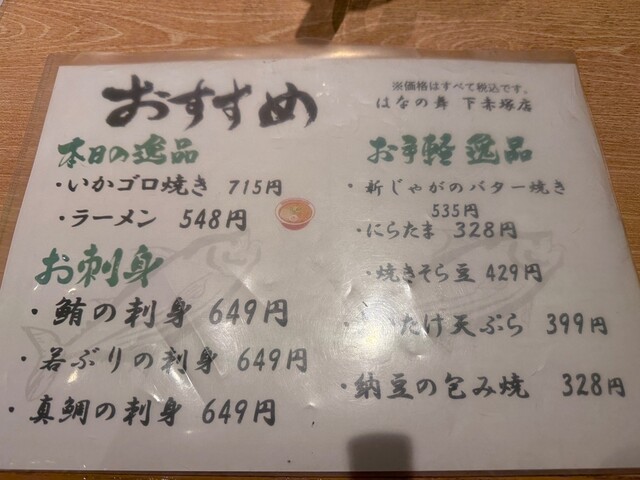 おすすめ
※価格はすべて税込です。
はなの舞 下赤塚店
本日の逸品
・いかゴロ焼き 715円
・ラーメン 548円
お刺身
・鮪の刺身 649円
・若ぶりの刺身 649円
・真鯛の刺身 649円
お手軽逸品
・新じゃがのバター焼き
535円
・にらたま 328円
・焼きそら豆 429円
たけ天ぷら 399円
・納豆の包み焼 328円